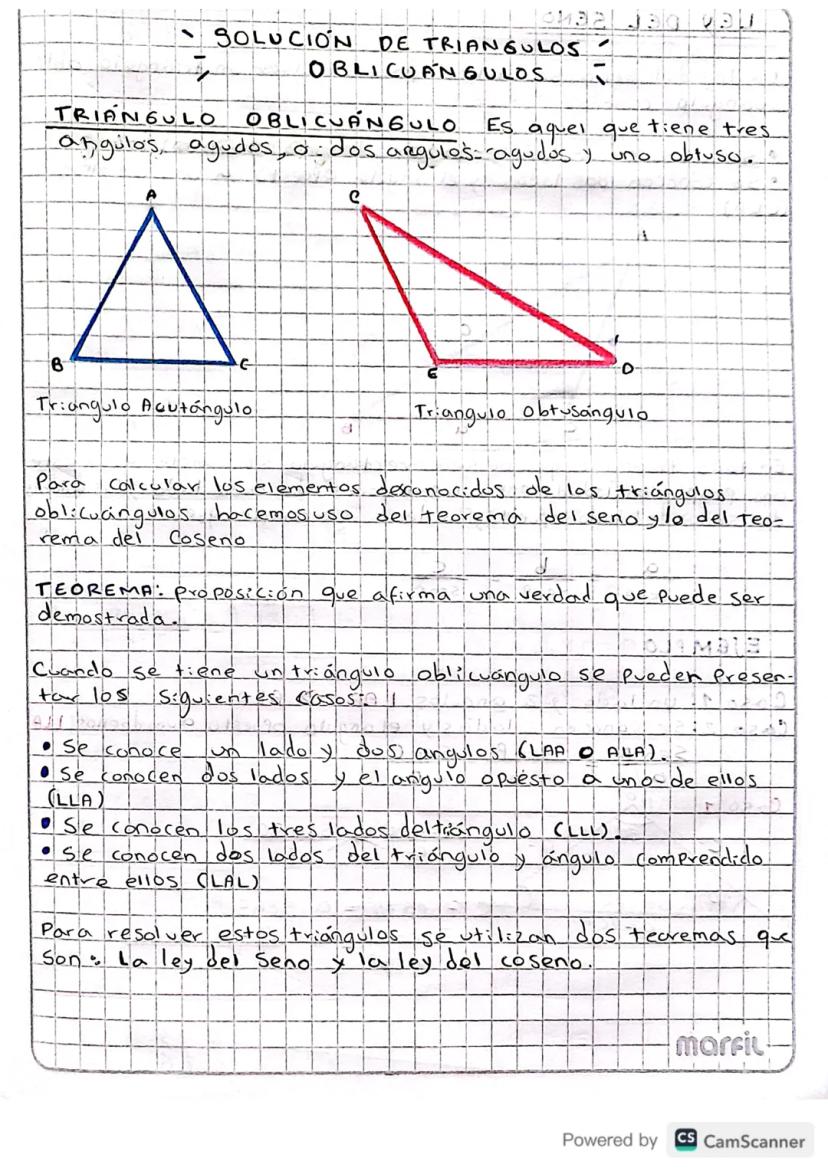 SOLUCIÓN DE TRIANGULOS
OBLICUÁNGULOS
TRIÁNGULO OBLICUÁNGULO Es aquel que tiene tres
angulos, agudos, o dos angulos agudos y uno obtuso.
A
B
C
C
E
D
Triangulo Acutángulo
Triangulo Obtusángulo
Para calcular los elementos desconocidos de los triángulos
oblicuángulos hacemos uso del teorema del seno y/o del Teo-
rema del Coseno
TEOREMA: proposición que afirma una verdad que puede ser
demostrada.
Cuando se tiene un triángulo oblicuángulo se pueden presen-
tar los siguientes casos:
• Se conoce un lado y dos angulos (LAA O ALA).
• Se conocen dos lados y el angulo opuesto a uno de ellos
(LLA)
• Se conocen los tres lados del triángulo (LLL).
• Se conocen dos lados del triángulo y ángulo comprendido
entre ellos (LAL)
Para resolver estos triángulos se utilizan dos teoremas que
son: La ley del Seno y la ley del coseno.
marfil
Powered by CS CamScanner